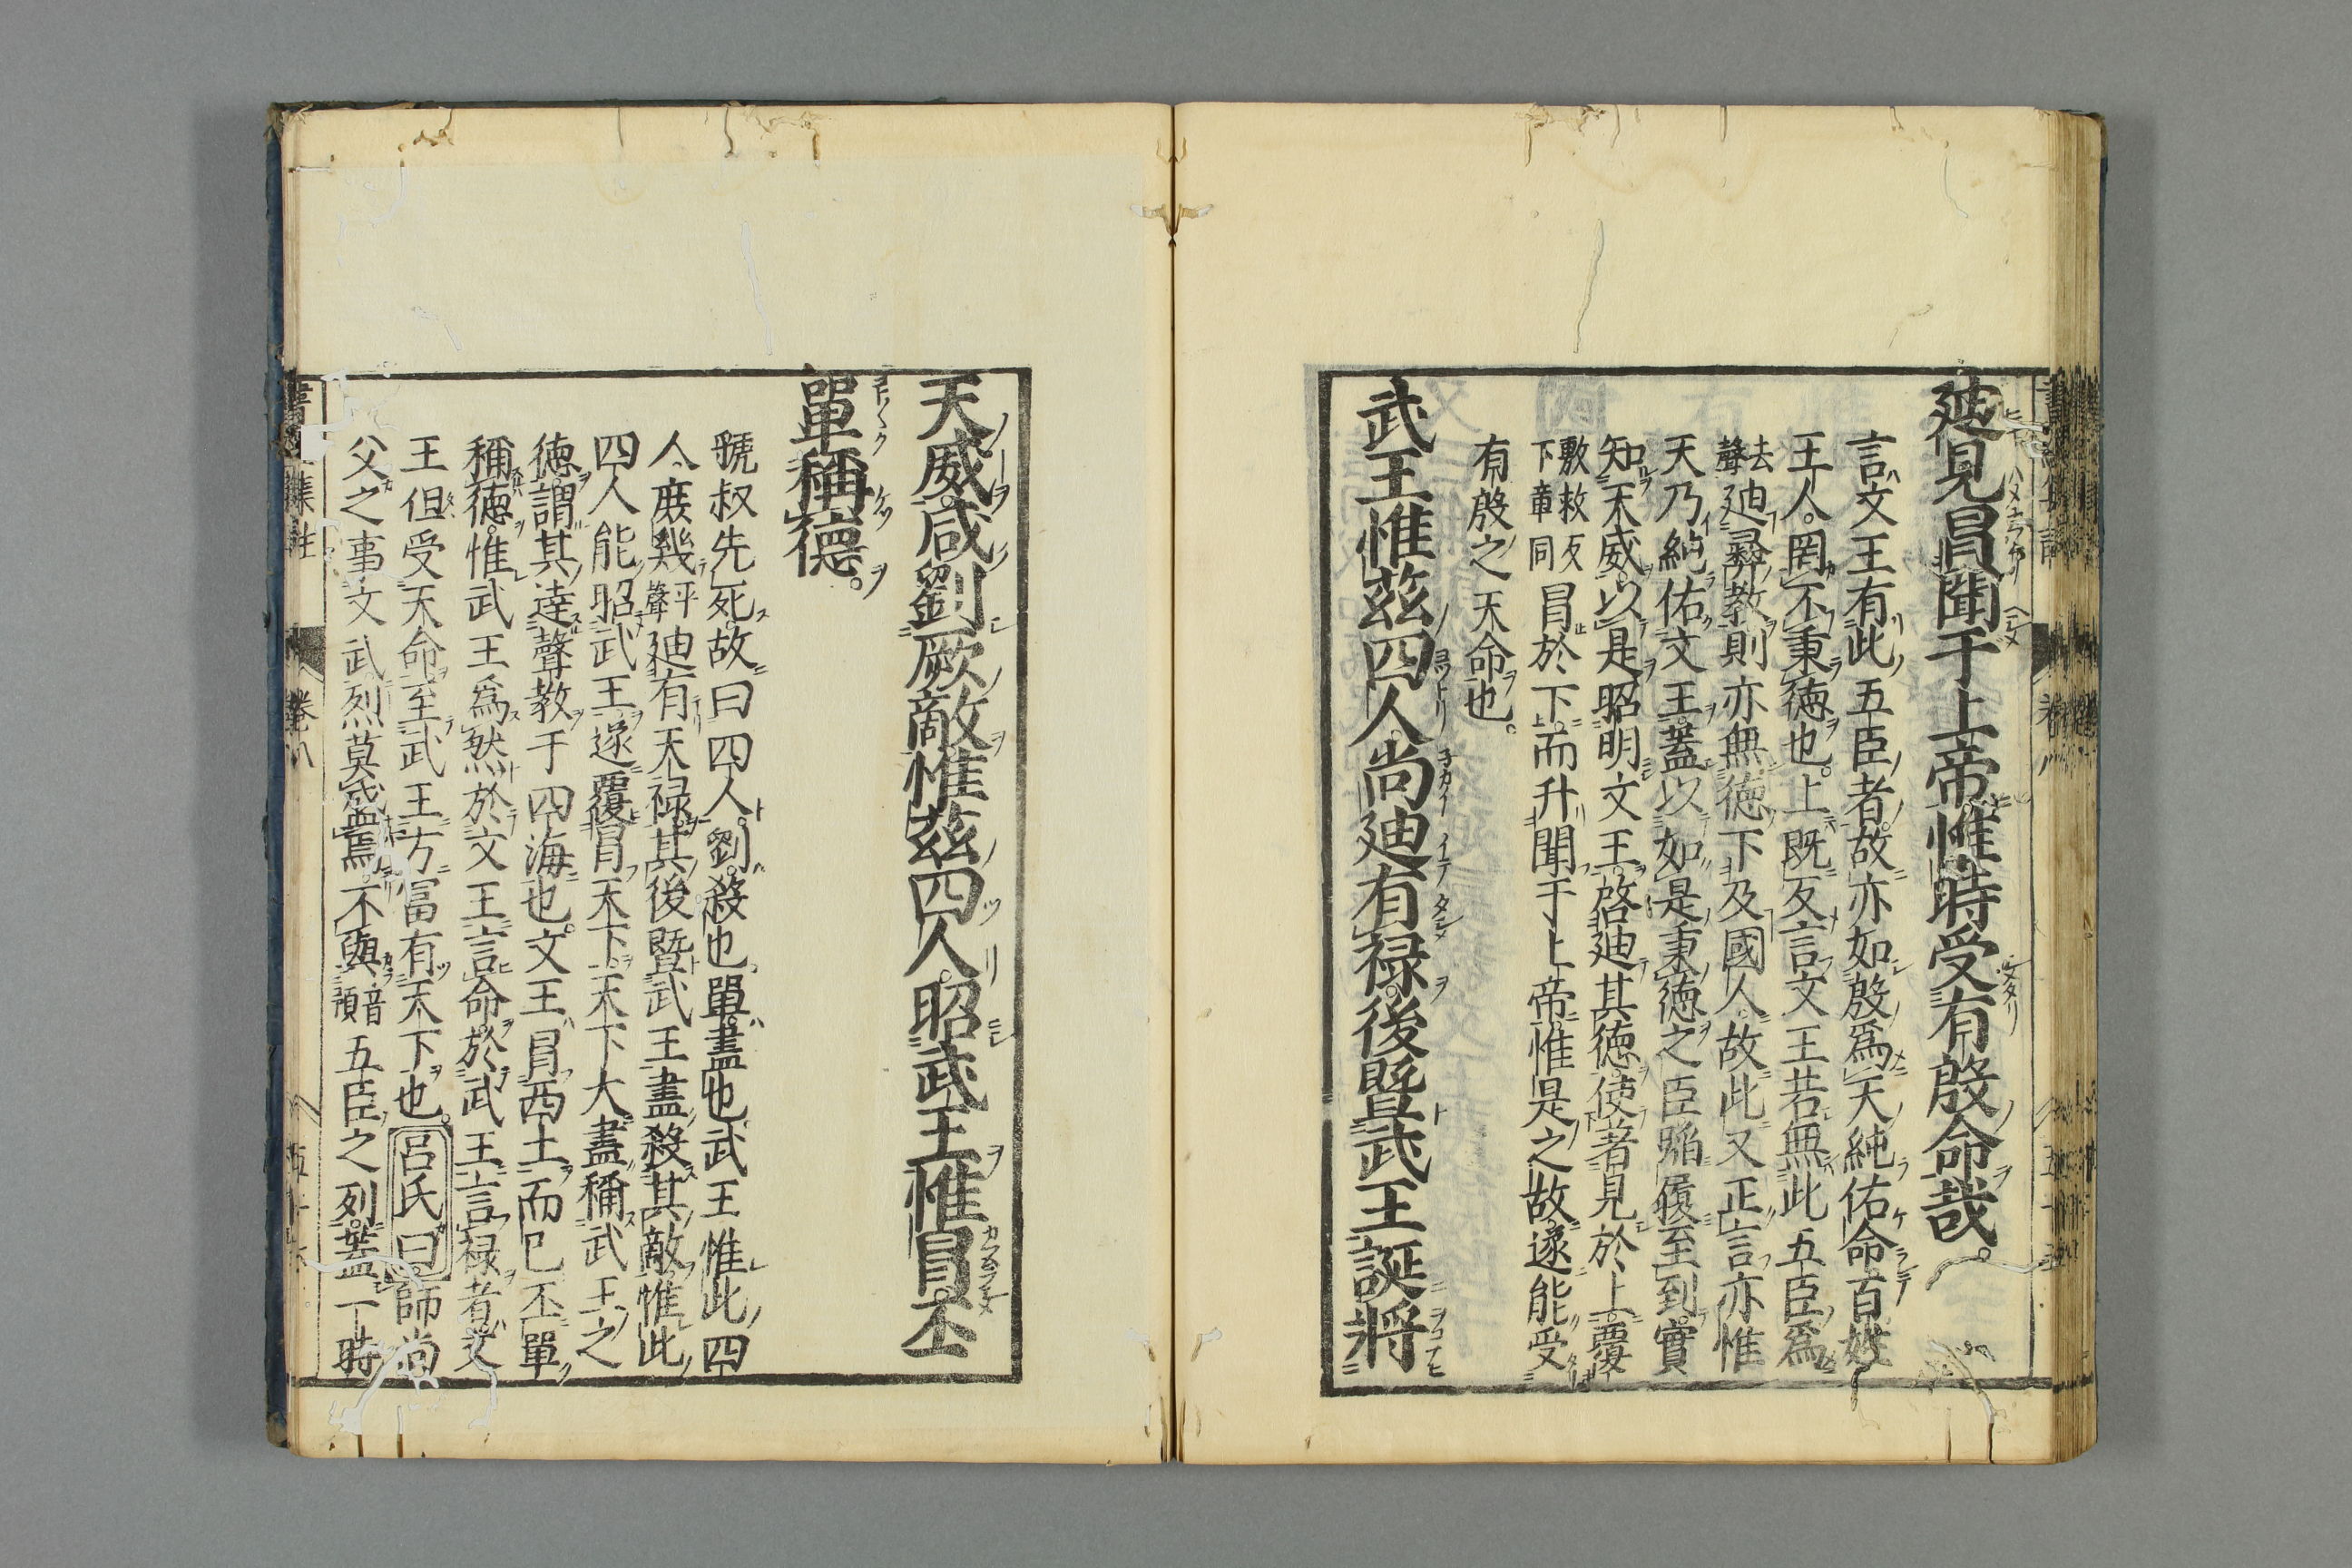 廸見冒聞于上帝惟時受有殷命哉。
言文王有此五臣者故亦如殷爲天純佑命百姓
王人。罔不秉德也。上既反言文王若無此五臣爲
去聲廸彛教則亦無德下及國人。故此又正言亦惟
天乃純佑文王。蓋以如是秉德之臣蹈履至到實
知天威。以是昭明文王。啓廸其德使著見於上。覆
敷救反下章同冒於下。而升聞于上帝。惟是之故遂能受
有殷之天命也。
武王惟茲四人尚廸有禄。後曁武王誕將
天威。咸劉厥敵。惟茲四人。昭武王惟冒。丕
單稱德。
虢叔先死。故曰四人。劉。殺也。單。盡也。武王惟此四
人。庶幾平聲廸有天禄。其後曁武王盡殺其敵。惟此
四人能昭武王遂覆冒天下。天下大盡稱武王之
德。謂其達聲教于四海也。文王冒西土而已。丕單
稱德。惟武王爲然。於文王言命。於武王言禄者。文
王但受天命。至武王方冨有天下也。呂氏曰師尚
父之事文武烈莫盛焉。不與音預五臣之列。蓋一時
卷八